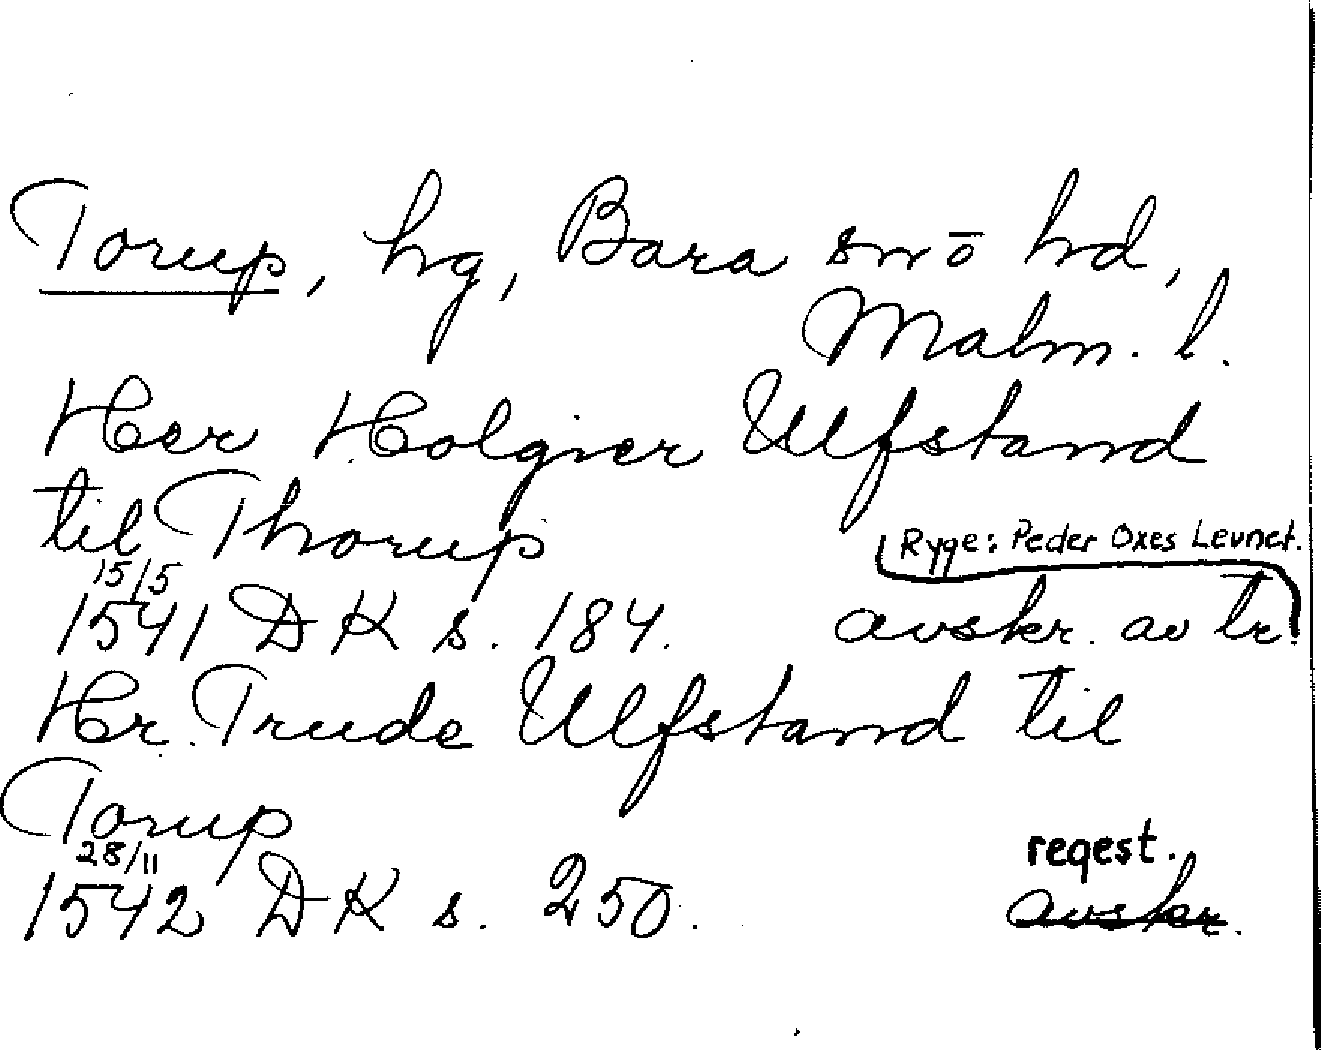 Torup, hg, Bara snō hd,
Malm. l.
Her Holgier Ulfstand
til Thorup
Ryge: Peder Oxes Levnet.
15/5
1541 DK s. 184. avskr. av tr.
Hr. Trude Ulfstand til
Torup
28/11
reqest.
1542 DK s. 250. avskr.